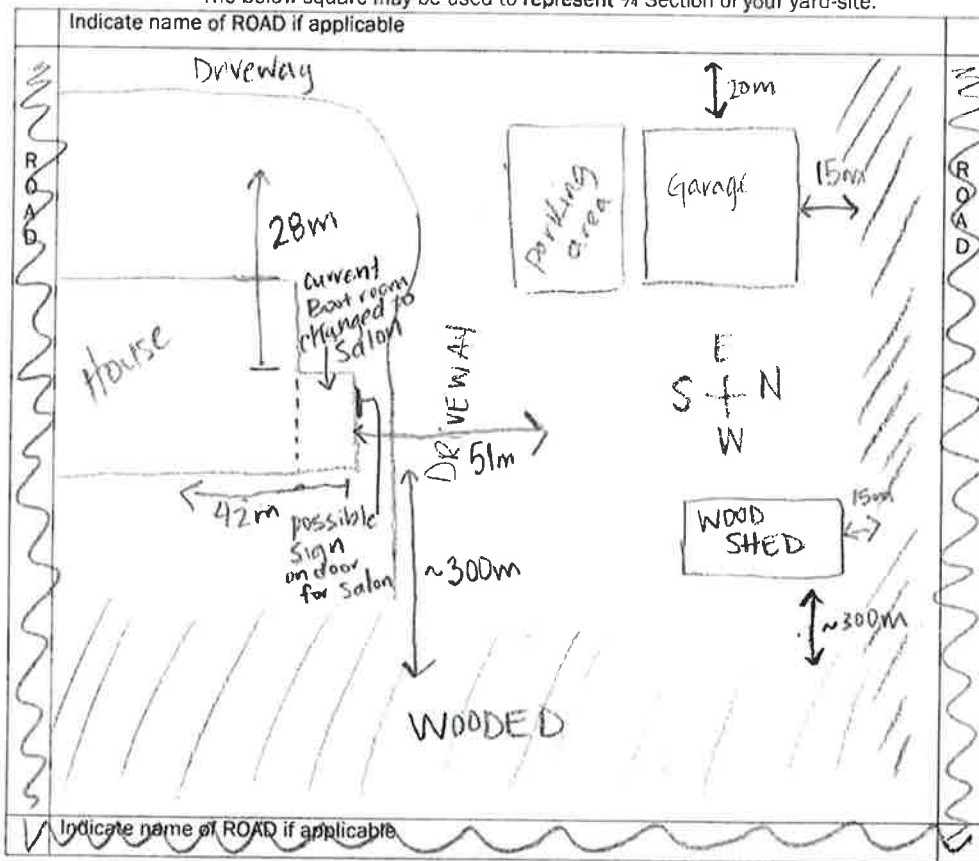 The below square may be used to represent ¼ Section of your yard-site.
Indicate name of ROAD if applicable
Driveway
20m
ROAD
ROAD
Parking
area
Garage
15m
28m
current
Boot room
changed to
Salon
House
DRIVEWAY
E
S N
W
51m
42m
possible
sign
on door
for salon
~300m
WOOD
SHED
15m
~300m
WOODED
Indicate name of ROAD if applicable